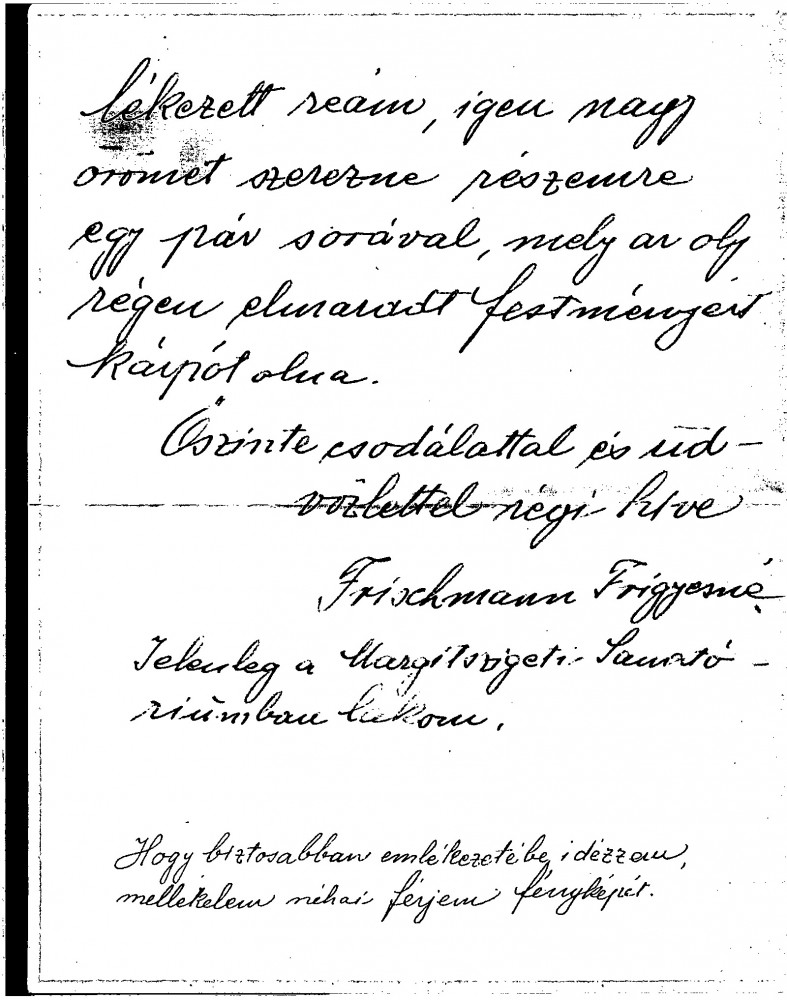 lékezett reám, igen nagy
örömet szerezne részemre
egy pár sorával, mely az oly
régen elmaradt festményért
kárpótolna.
Őszinte csodálattal és üd-
vözlettel régi híve
Frischmann Frigyesné
Jelenleg a Margitszigeti Sanató-
riumban lakom.
Hogy biztosabban emlékezetébe idézzem,
mellékelem néhai férjem fényképét.